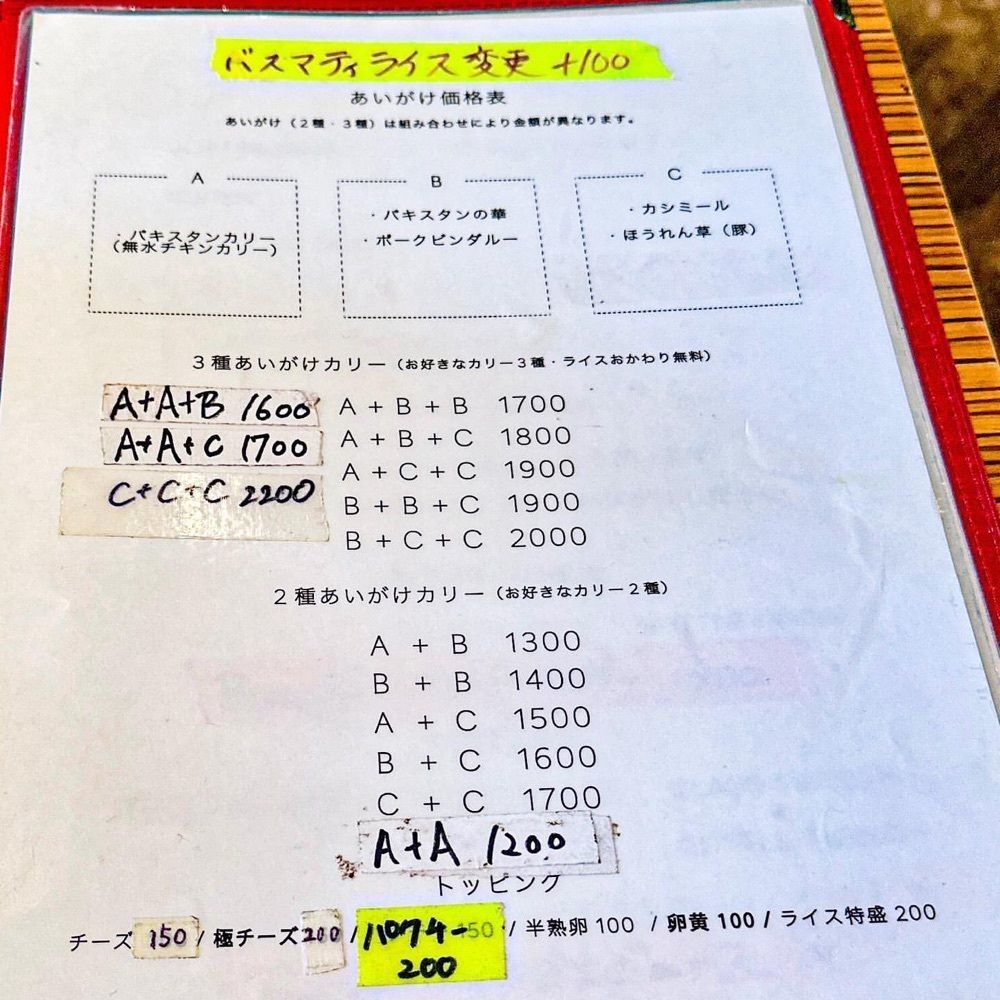 バスマティライス変更 +100
あいがけ価格表
あいがけ（２種・３種）は組み合わせにより金額が異なります。
A
・パキスタンカリー
（無水チキンカリー）
B
・パキスタンの華
・ポークビンダルー
C
・カシミール
・ほうれん草（豚）
３種あいがけカリー（お好きなカリー３種・ライスおかわり無料）
A+A+B 1600
A+A+C 1700
C+C+C 2200
A + B + B 1700
A + B + C 1800
A + C + C 1900
B + B + C 1900
B + C + C 2000
２種あいがけカリー（お好きなカリー２種）
A + B 1300
B + B 1400
A + C 1500
B + C 1600
C + C 1700
A+A 1200
トッピング
チーズ 150 / 極チーズ 200 / パクチー 200 / 半熟卵 100 / 卵黄 100 / ライス特盛 200